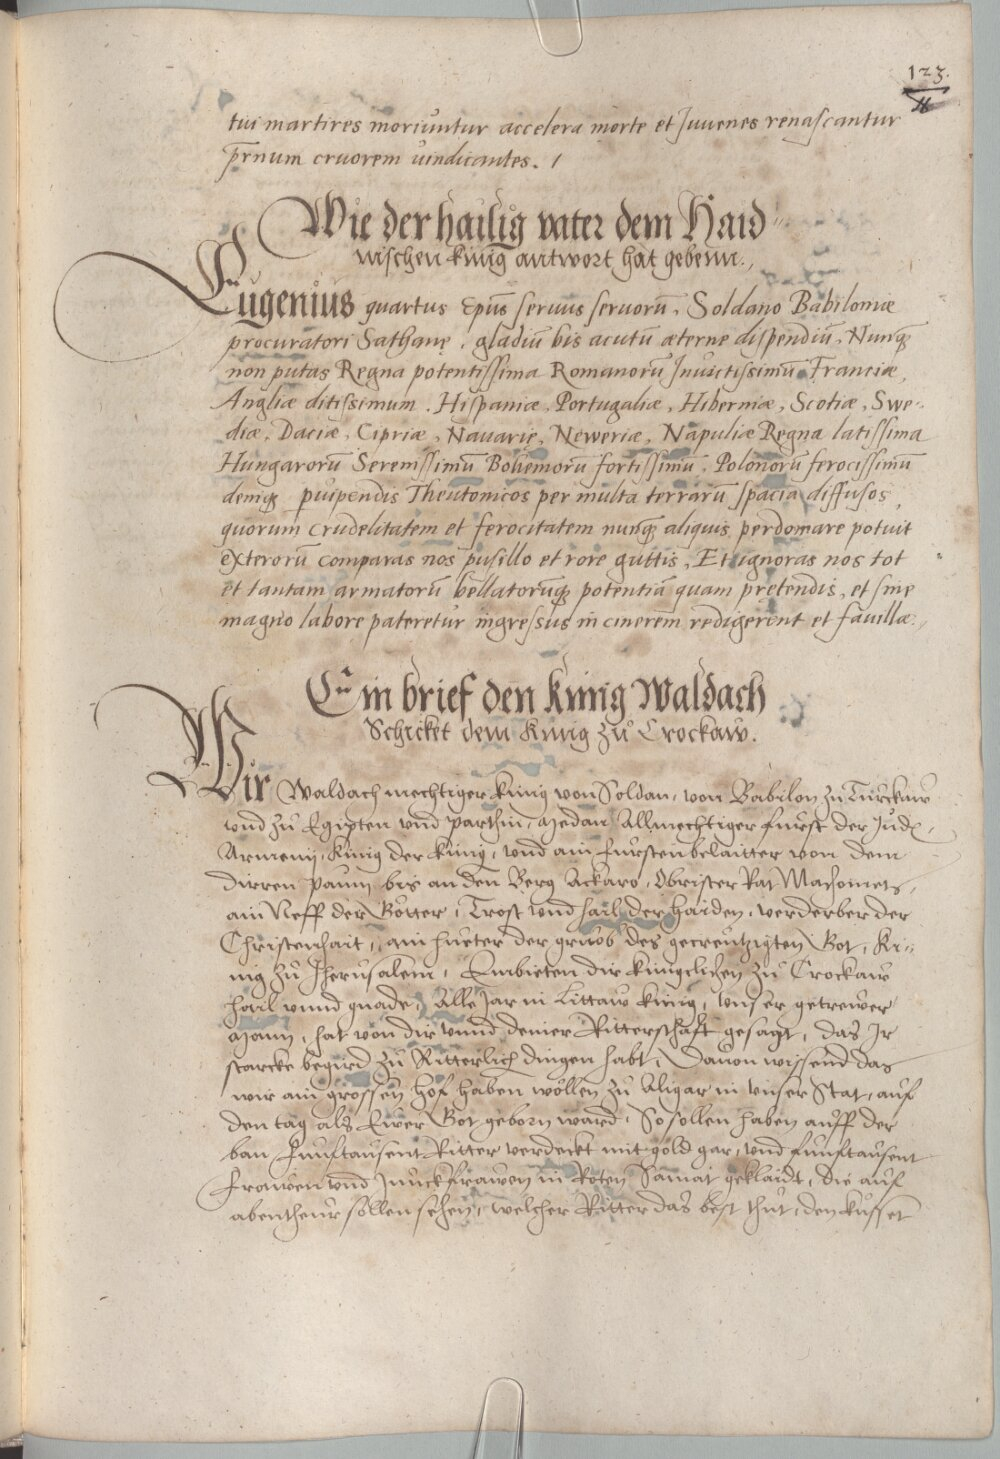 123.
tui martires moriuntur accelera morte et Juuenes renascantur
p̄rnum cruorem vindicantes. /
Wie der hailig vater dem Haid⸗
nischen kinig antwort hat gebenn.,
Eugenius quartus Ep̄us seruus seruorū, Soldano Babiloniæ
procuratori Sathanę, gladiū bis acutū æterne dispendiū, Nunq̨
non putas Regna potentissima Romanorū Inuictissimū Franciæ,
Angliæ ditissimum, Hispaniæ, Portugaliæ, Hiberniæ, Scotiæ, Swe⸗
diæ, Daciæ, Cipriæ, Nauarię, Neweriæ, Napuliæ Regna latissima
Hungarorū Serenissimū Bohemorū fortissimū, Polonorū ferocissimū
demq̨ Theutonicos per multa terrarū spacia diffusos,
quorum crudelitatem et ferocitatem nunq̨ aliquis perdomare potuit
exterorū comparas nos pusillo et rore guttis, Et ignoras nos tot
et tantam armatorū bellatorūq̨ potentiā quam prętendis, et sine
magno labore pateretur ingressus in cinerem redigerent et fauillæ.,
Ein brief den kinig Waldach
Schicket dem Kinig zů Crockaw.
Wir Waldach mechtiger kinig von Soldan, von Babilon zu Türckaw
vnd zů Egipten vnd parthin, Allmechtiger furst der Jud,
Armenij, König der kinig, vnd ain furstenbelaitter von dem
dirren paum bis an den Berg Ackaro, Obrister Rat Machomets,
ain Neff der Götter, Trost vnd hail der haiden, verderber der
Christenhait, ain hueter der gruob des gecreutzigten Got, Ki⸗
nig zů Jherusalem, Embieten dir kingclichen zů Crockaw
hail vnnd gnade, Alle Jar in Littaw kinig, vnser getrewer
Mann, hat von dir vnnd deiner Ritterschafft gesagt, das Ir
starcke begird zů Ritterlich dingen habt, Dauon wissend das
wir ain grossen hof haben wöllen zů Aligar in vnser Stat, auf
den tag als Ewer Got geborn ward, So sollen haben auff der
ban funftausent Ritter verdeckt mit gold gar, vnd funftausent
frawen vnd Junckfrawen in Roten Samat geklaidt, die auf
abentheur sollen sehen, welcher Ritter das best thut, den kusset